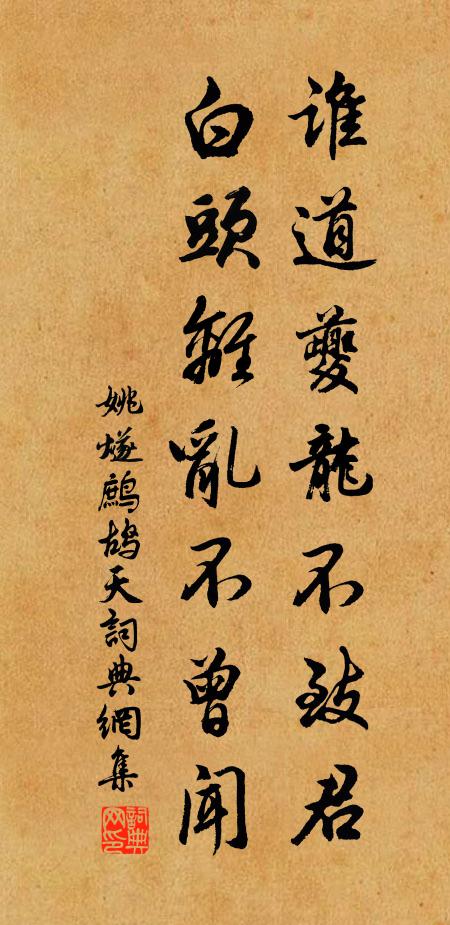 誰道夔龍不致君
白頭離亂不曾聞
姚燧鷓鴣天詞典網集
詞典網印